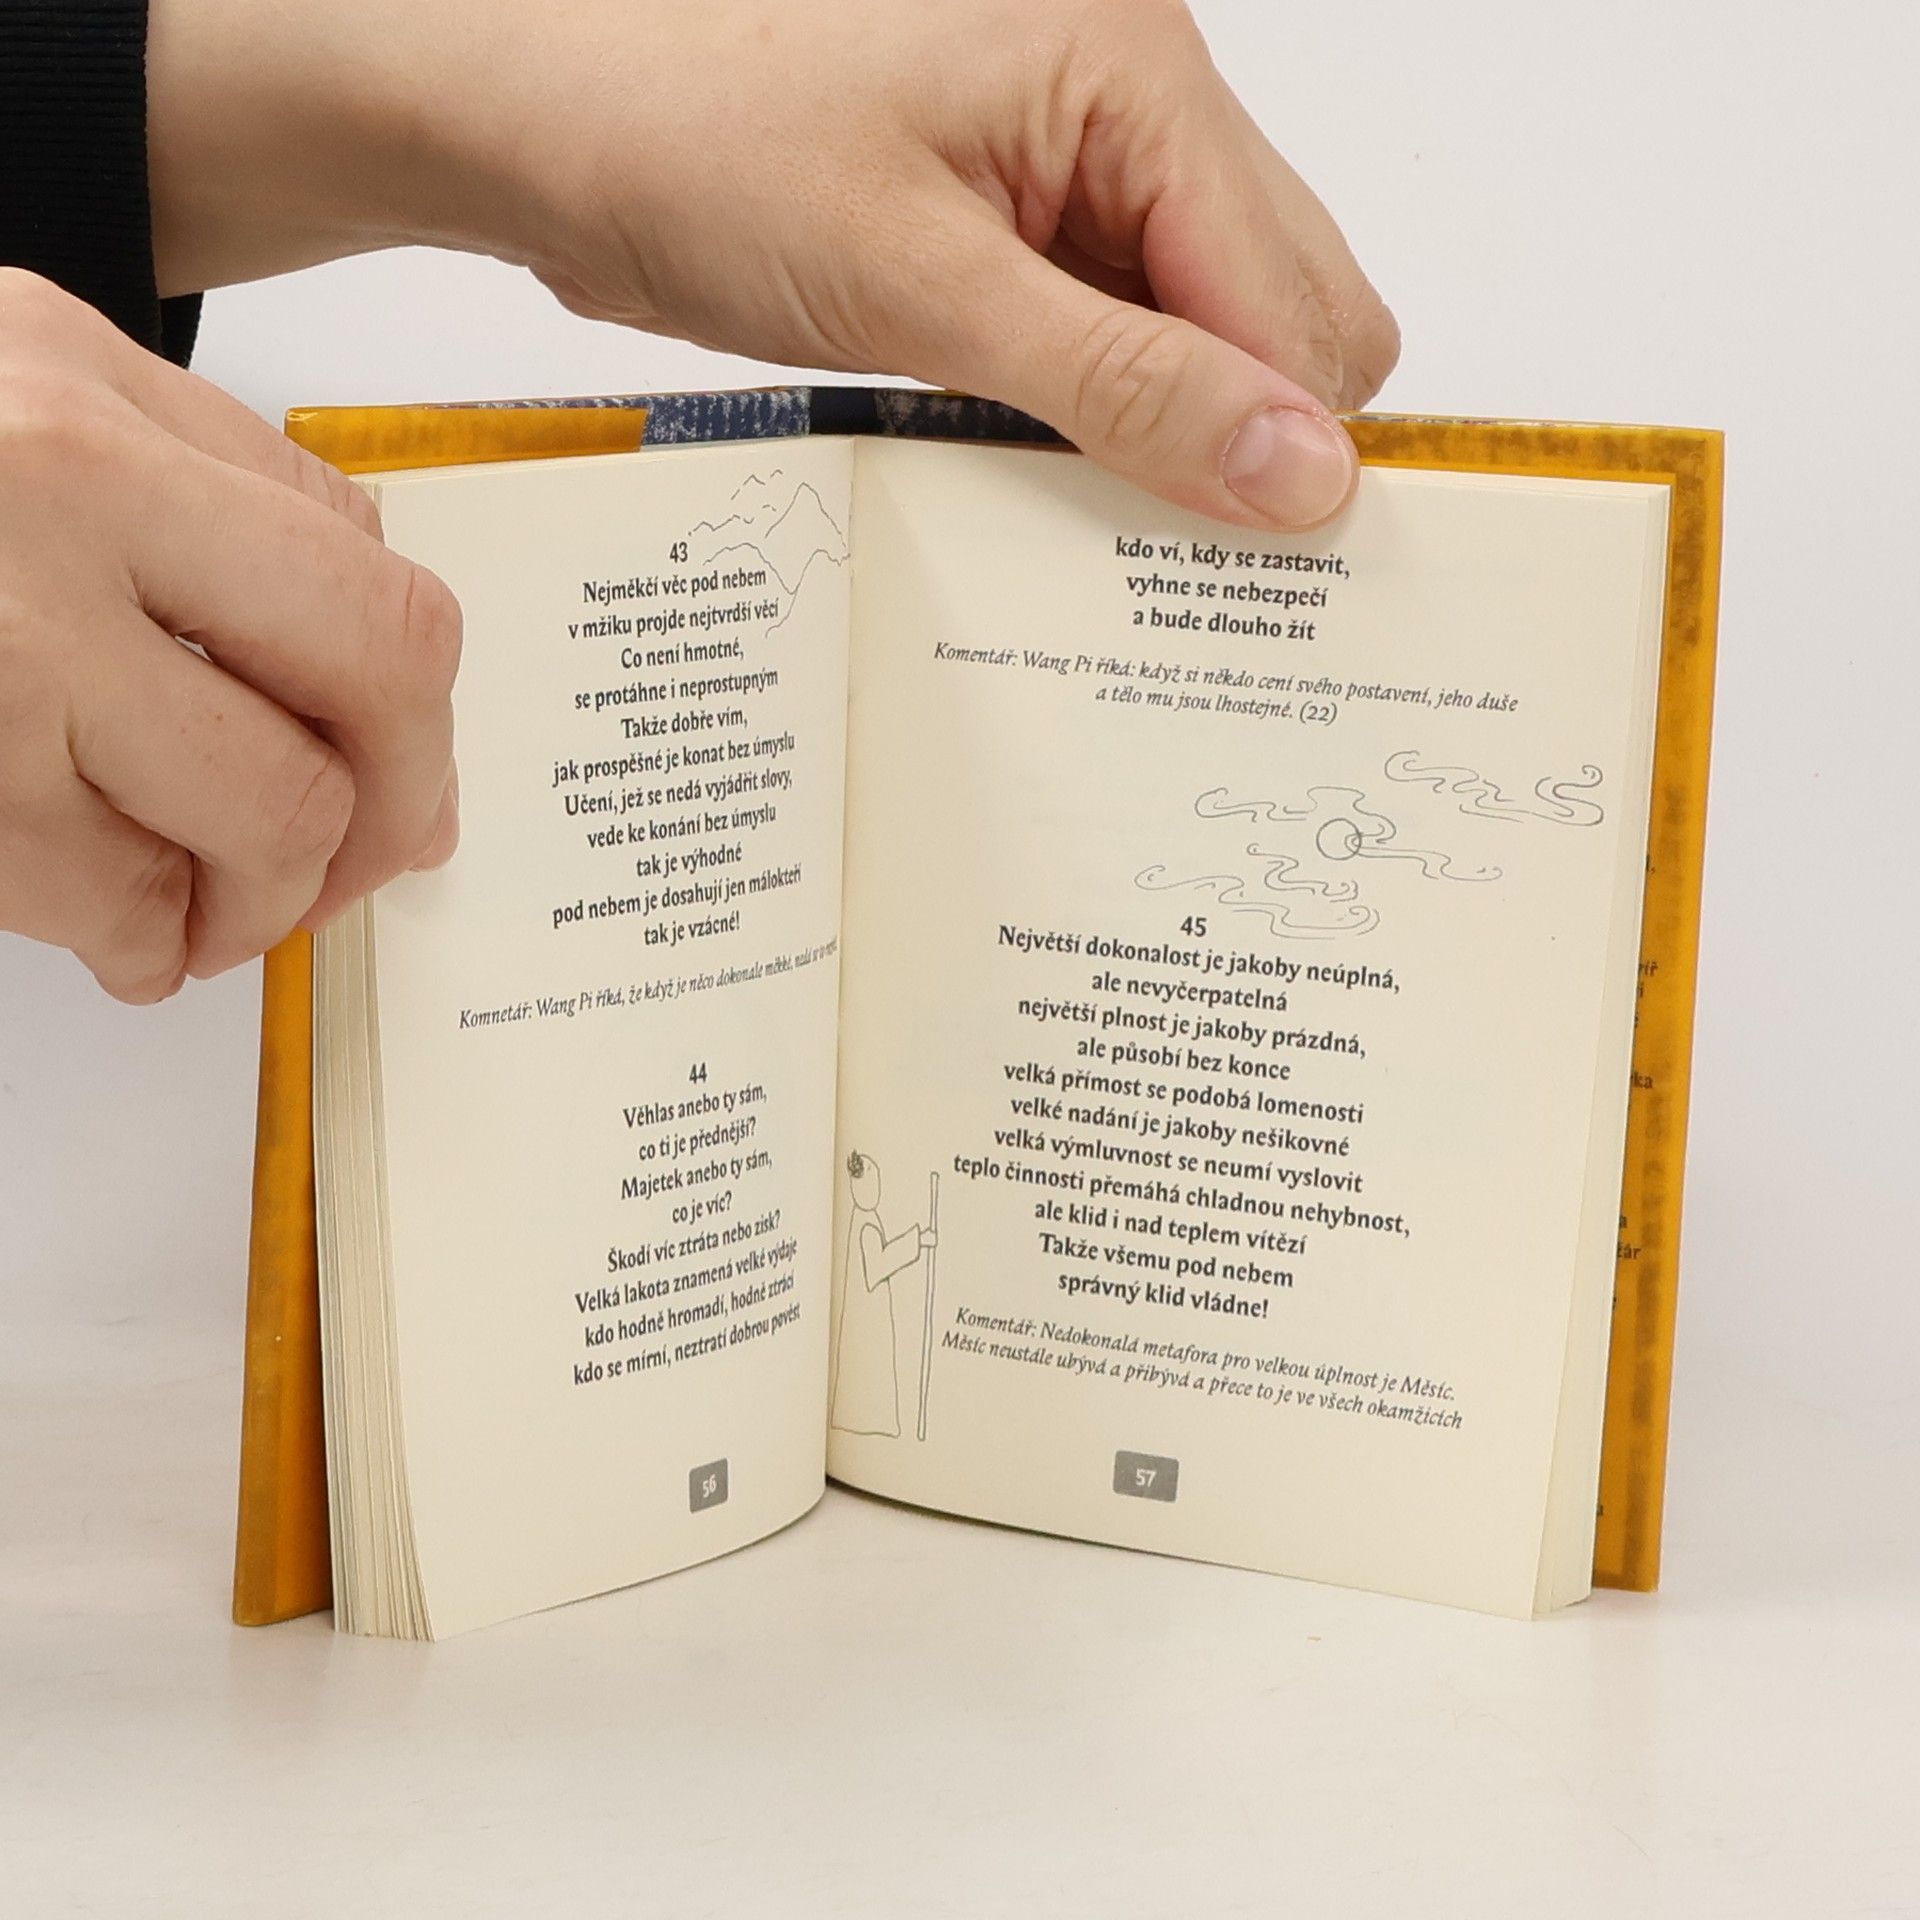 43
Nejměkčí věc pod nebem
v mžiku projde nejtvrdší věcí
Co není hmotné,
se protáhne i neprostupným
Takže dobře vím,
jak prospěšné je konat bez úmyslu
Učení, jež se nedá vyjádřit slovy,
vede ke konání bez úmyslu
tak je výhodné
pod nebem je dosahují jen málokteří
tak je vzácné!
Komnetář: Wang Pi říká, že když je něco dokonale měkké,
44
Věhlas anebo ty sám,
co ti je přednější?
Majetek anebo ty sám,
co je víc?
Škodí víc ztráta nebo zisk?
Velká lakota znamená velké výdaje
kdo hodně hromadí, hodně ztrácí
kdo se mírní, neztratí dobrou pověst
56
kdo ví, kdy se zastavit,
vyhne se nebezpečí
a bude dlouho žít
Komentář: Wang Pi říká: když si někdo cení svého postavení, jeho duše
a tělo mu jsou lhostejné. (22)
45
Největší dokonalost je jakoby neúplná,
ale nevyčerpatelná
největší plnost je jakoby prázdná,
ale působí bez konce
velká přímost se podobá lomenosti
velké nadání je jakoby nešikovné
velká výmluvnost se neumí vyslovit
teplo činnosti přemáhá chladnou nehybnost,
ale klid i nad teplem vítězí
Takže všemu pod nebem
správný klid vládne!
Komentář: Nedokonalá metafora pro velkou úplnost je Měsíc.
Měsíc neustále ubývá a přibývá a přece to je ve všech okamžicích
57